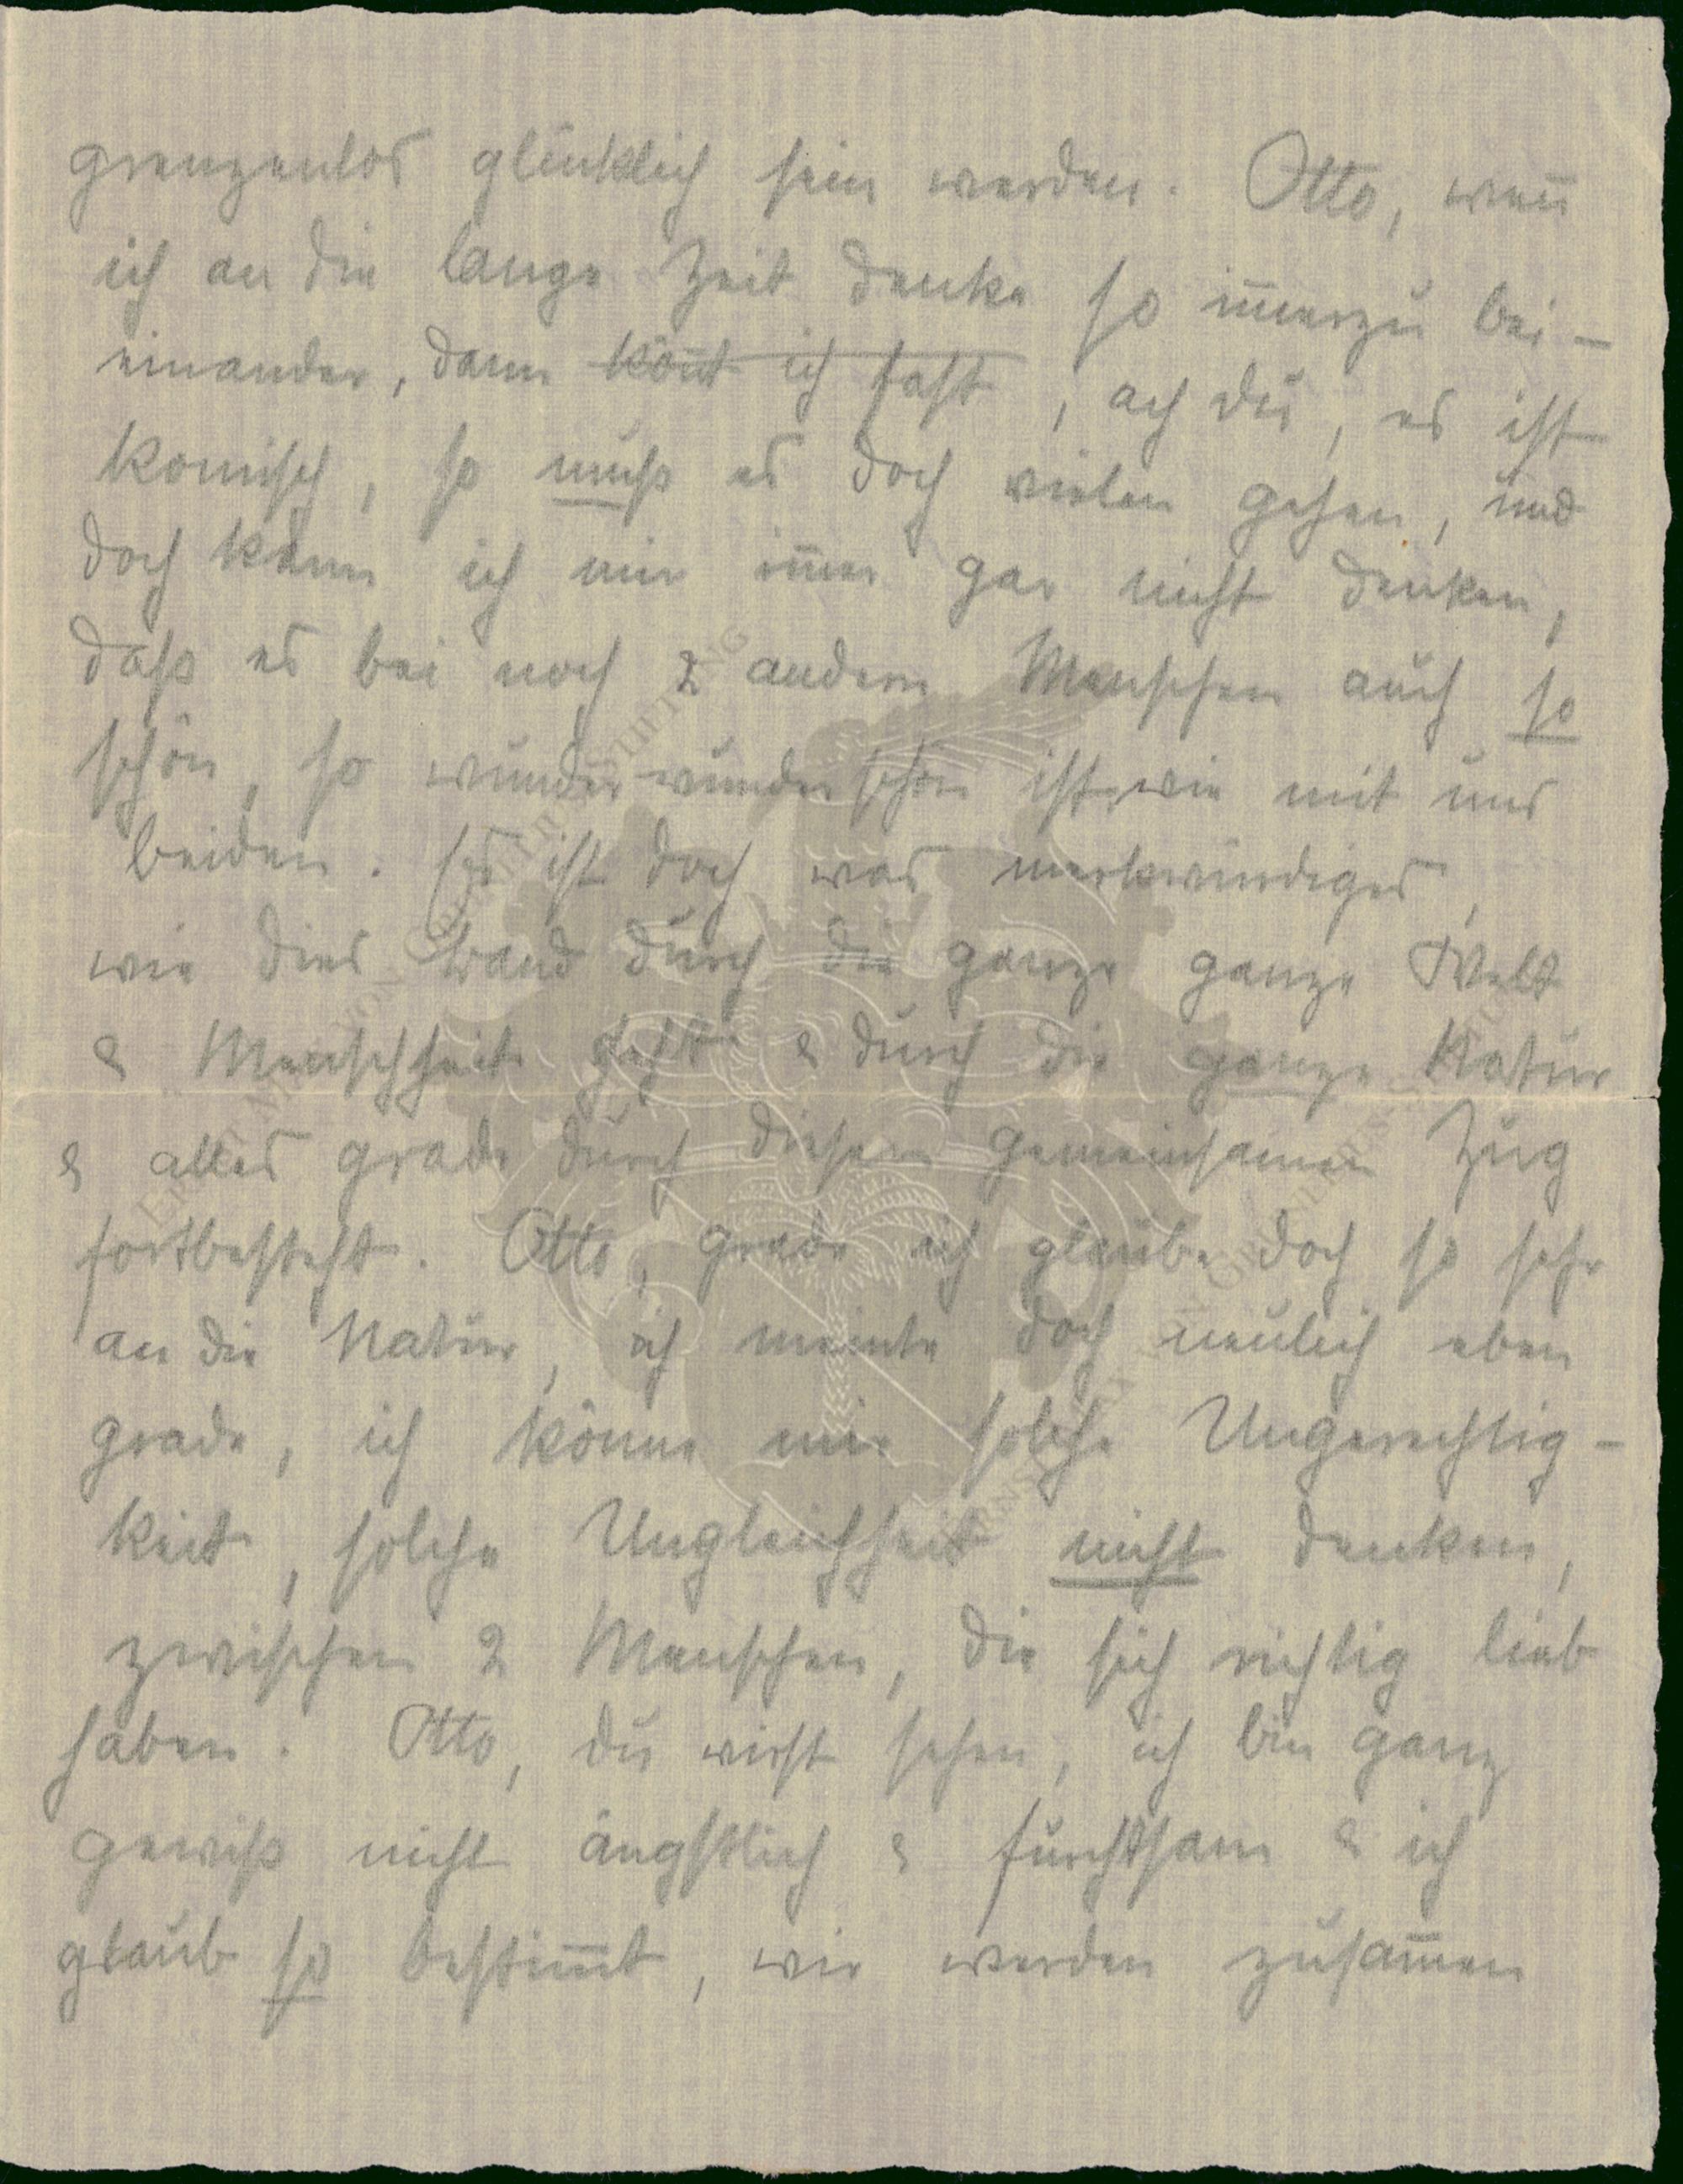 grenzenlos glücklich sein werden. Otto, wen̅
ich an die lange Zeit denke so im̅erzu bei-
einander, dann kön̅t ich fast, ach du, es ist
komisch, so muß es doch vielen gehen, und
doch kann ich mir im̅er gar nicht denken,
daß es bei noch 2 andern Menschen auch so
schön, so wunder wunderschön ist, wie mit uns
beiden. Es ist doch was merkwürdiges,
wie dies Band durch die ganze ganze Welt
& Menschheit geht & durch die ganze Natur
& alles grade durch diesen gemeinsamen Zug
fortbesteht. Otto, grade ich glaube doch so sehr
an die Natur, ich meinte doch neulich eben
grade, ich könne mir solche Ungerechtig-
keit, solche Ungleichheit nicht denken,
zwischen 2 Menschen, die sich richtig lieb
haben. Otto, du wirst sehen, ich bin ganz
gewiß nicht ängstlich & furchtsam & ich
glaub so bestim̅t, wir werden zusam̅en